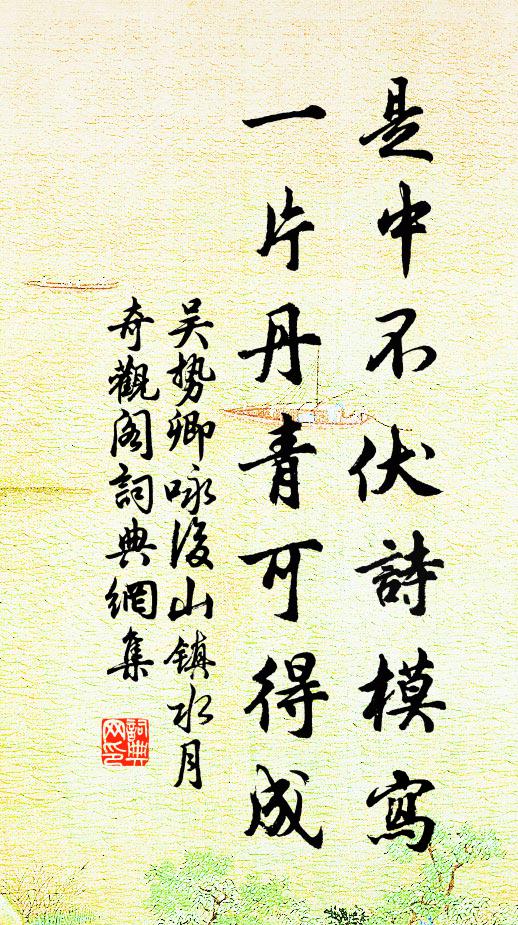 是中不伏詩模寫
一片丹青可得成
吴势卿咏後山鎮水月
奇觀閣詞典網集
詞典网印